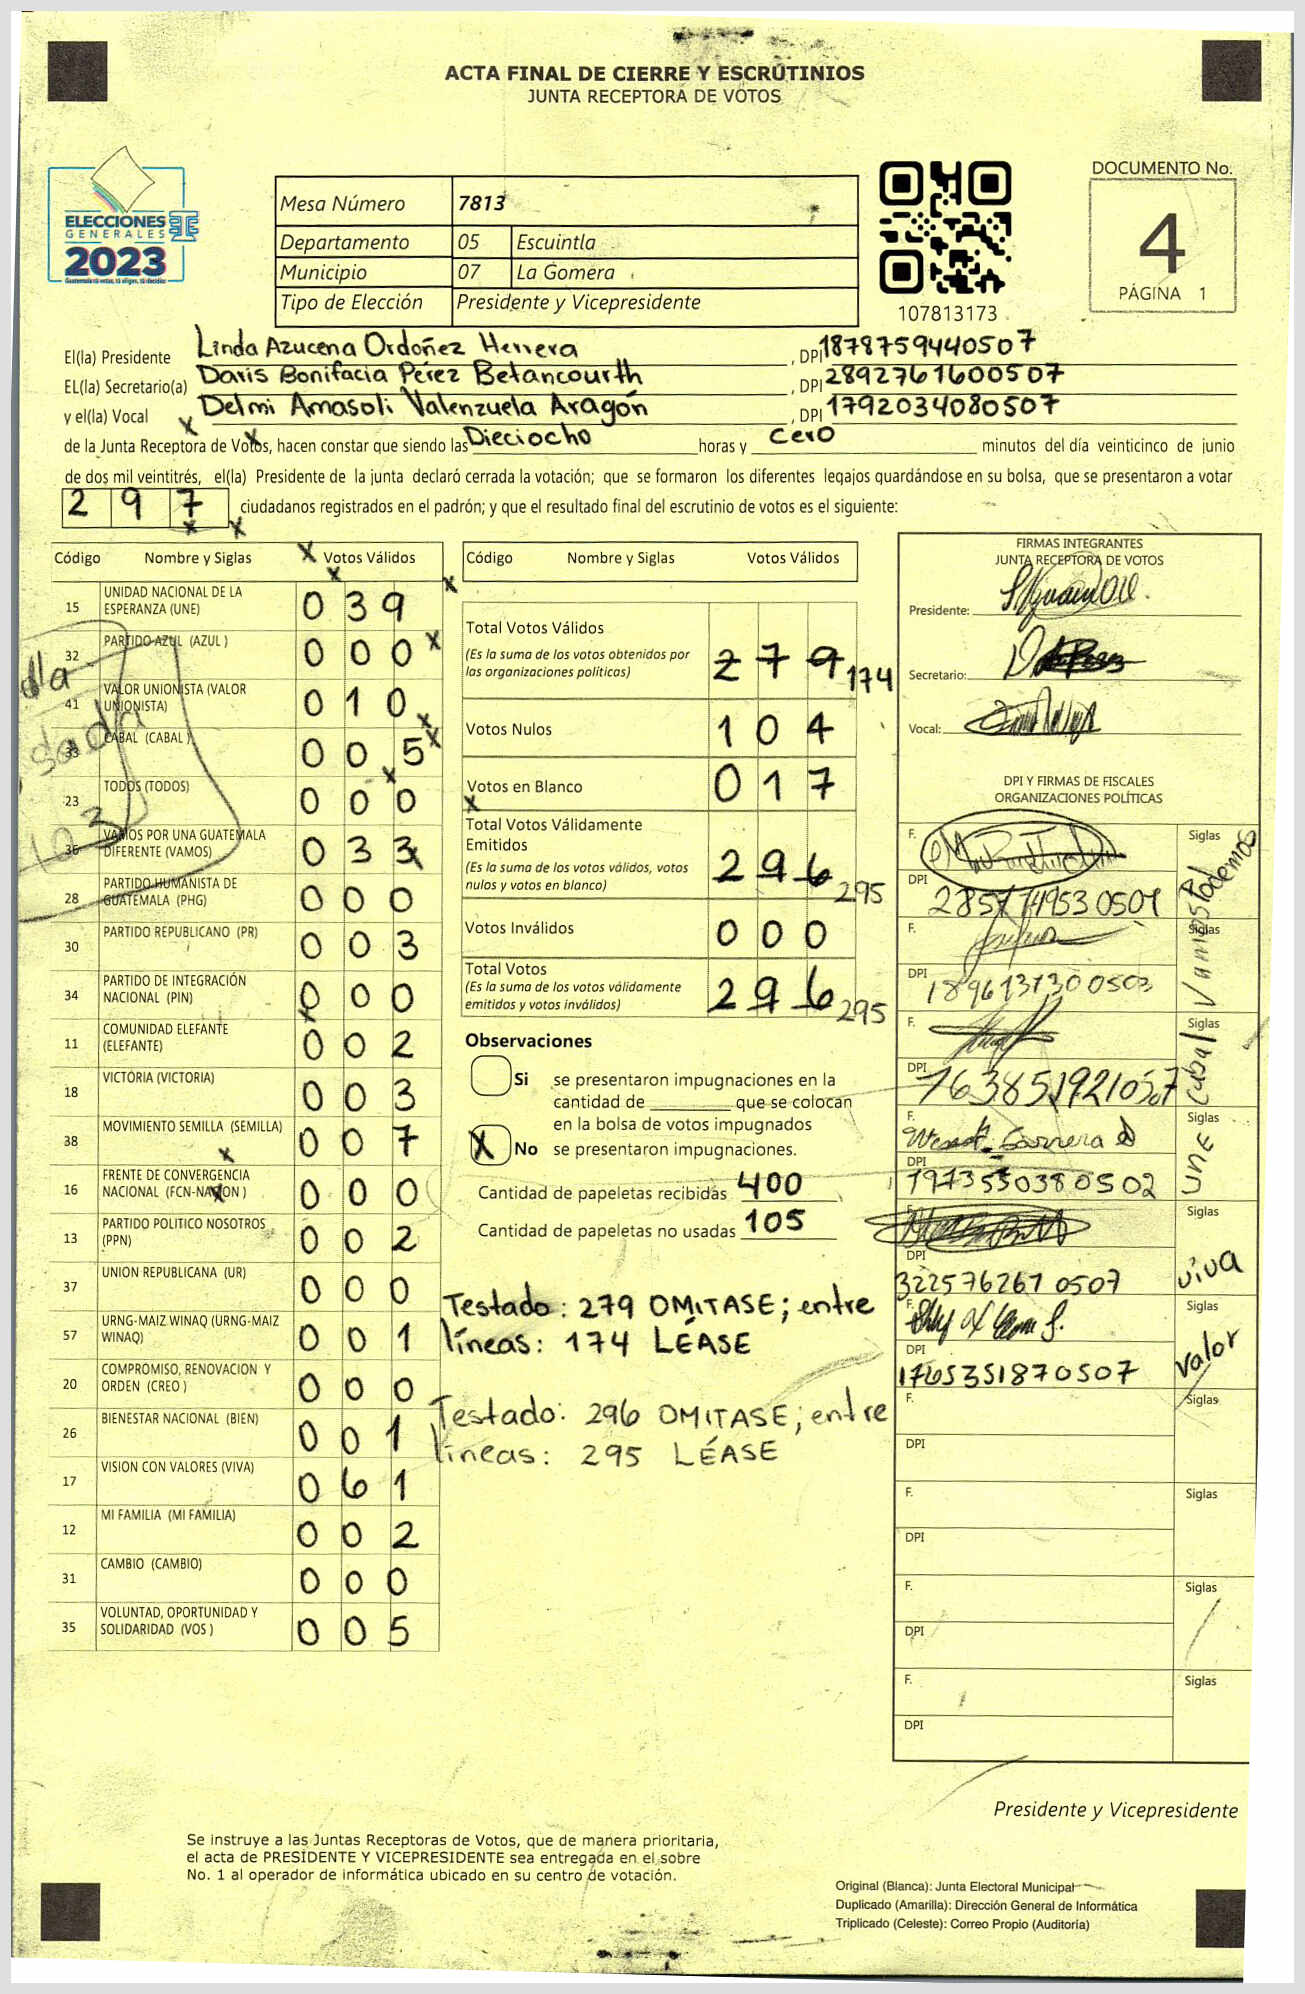 ACTA FINAL DE CIERRE Y ESCRUTINIOS
JUNTA RECEPTORA DE VOTOS
ELECCIONES
GENERALES
2023
Guatemala tú votas, tú eliges, tú decides
Mesa Número 7813
Departamento 05 Escuintla
Municipio 07 La Gomera
Tipo de Elección Presidente y Vicepresidente
107813173
DOCUMENTO No.
4
PÁGINA 1
El(la) Presidente Linda Azucena Ordoñez Herrera , DPI 1878759440507
EL(la) Secretario(a) Daris Bonifacia Pérez Betancourth , DPI 2892761600507
y el(la) Vocal x Delmi Amasoli Valenzuela Aragón , DPI 1792034080507
de la Junta Receptora de Votos, hacen constar que siendo las Dieciocho horas y cero minutos del día veinticinco de junio
de dos mil veintitrés, el(la) Presidente de la junta declaró cerrada la votación; que se formaron los diferentes legajos guardándose en su bolsa, que se presentaron a votar
297 ciudadanos registrados en el padrón; y que el resultado final del escrutinio de votos es el siguiente:
Código Nombre y Siglas Votos Válidos
15 UNIDAD NACIONAL DE LA ESPERANZA (UNE) 039
32 PARTIDO AZUL (AZUL ) 000
41 VALOR UNIONISTA (VALOR UNIONISTA) 010
33 CABAL (CABAL ) 005
23 TODOS (TODOS) 000
36 VAMOS POR UNA GUATEMALA DIFERENTE (VAMOS) 033
28 PARTIDO HUMANISTA DE GUATEMALA (PHG) 000
30 PARTIDO REPUBLICANO (PR) 003
34 PARTIDO DE INTEGRACIÓN NACIONAL (PIN) 000
11 COMUNIDAD ELEFANTE (ELEFANTE) 002
18 VICTORIA (VICTORIA) 003
38 MOVIMIENTO SEMILLA (SEMILLA) 007
16 FRENTE DE CONVERGENCIA NACIONAL (FCN-NACION ) 000
13 PARTIDO POLITICO NOSOTROS (PPN) 002
37 UNION REPUBLICANA (UR) 000
57 URNG-MAIZ WINAQ (URNG-MAIZ WINAQ) 001
20 COMPROMISO, RENOVACION Y ORDEN (CREO ) 000
26 BIENESTAR NACIONAL (BIEN) 001
17 VISION CON VALORES (VIVA) 061
12 MI FAMILIA (MI FAMILIA) 002
31 CAMBIO (CAMBIO) 000
35 VOLUNTAD, OPORTUNIDAD Y SOLIDARIDAD (VOS ) 005
Código Nombre y Siglas Votos Válidos
Total Votos Válidos 279 174
(Es la suma de los votos obtenidos por
las organizaciones políticas)
Votos Nulos 104
Votos en Blanco 017
Total Votos Válidamente
Emitidos 296 295
(Es la suma de los votos válidos, votos
nulos y votos en blanco)
Votos Inválidos 000
Total Votos 296 295
(Es la suma de los votos válidamente
emitidos y votos inválidos)
Observaciones
Si se presentaron impugnaciones en la
cantidad de ________ que se colocan
en la bolsa de votos impugnados
X No se presentaron impugnaciones.
Cantidad de papeletas recibidas 400
Cantidad de papeletas no usadas 105
Testado: 279 OMITASE; entre
líneas: 174 LÉASE
Testado: 296 OMITASE; entre
líneas: 295 LÉASE
FIRMAS INTEGRANTES
JUNTA RECEPTORA DE VOTOS
Presidente:
Secretario:
Vocal:
DPI Y FIRMAS DE FISCALES
ORGANIZACIONES POLÍTICAS
F. Siglas
DPI
F. Siglas Vamos
DPI 1896131300503
F. Siglas Cabal
DPI
F. Siglas UNE
DPI 1973550380502
F. Siglas viva
DPI 3225762670507
F. Siglas valor
DPI 1765351870507
F. Siglas
DPI
F. Siglas
DPI
F. Siglas
DPI
F. Siglas
DPI
Presidente y Vicepresidente
Se instruye a las Juntas Receptoras de Votos, que de manera prioritaria,
el acta de PRESIDENTE Y VICEPRESIDENTE sea entregada en el sobre
No. 1 al operador de informática ubicado en su centro de votación.
Original (Blanca): Junta Electoral Municipal
Duplicado (Amarilla): Dirección General de Informática
Triplicado (Celeste): Correo Propio (Auditoría)